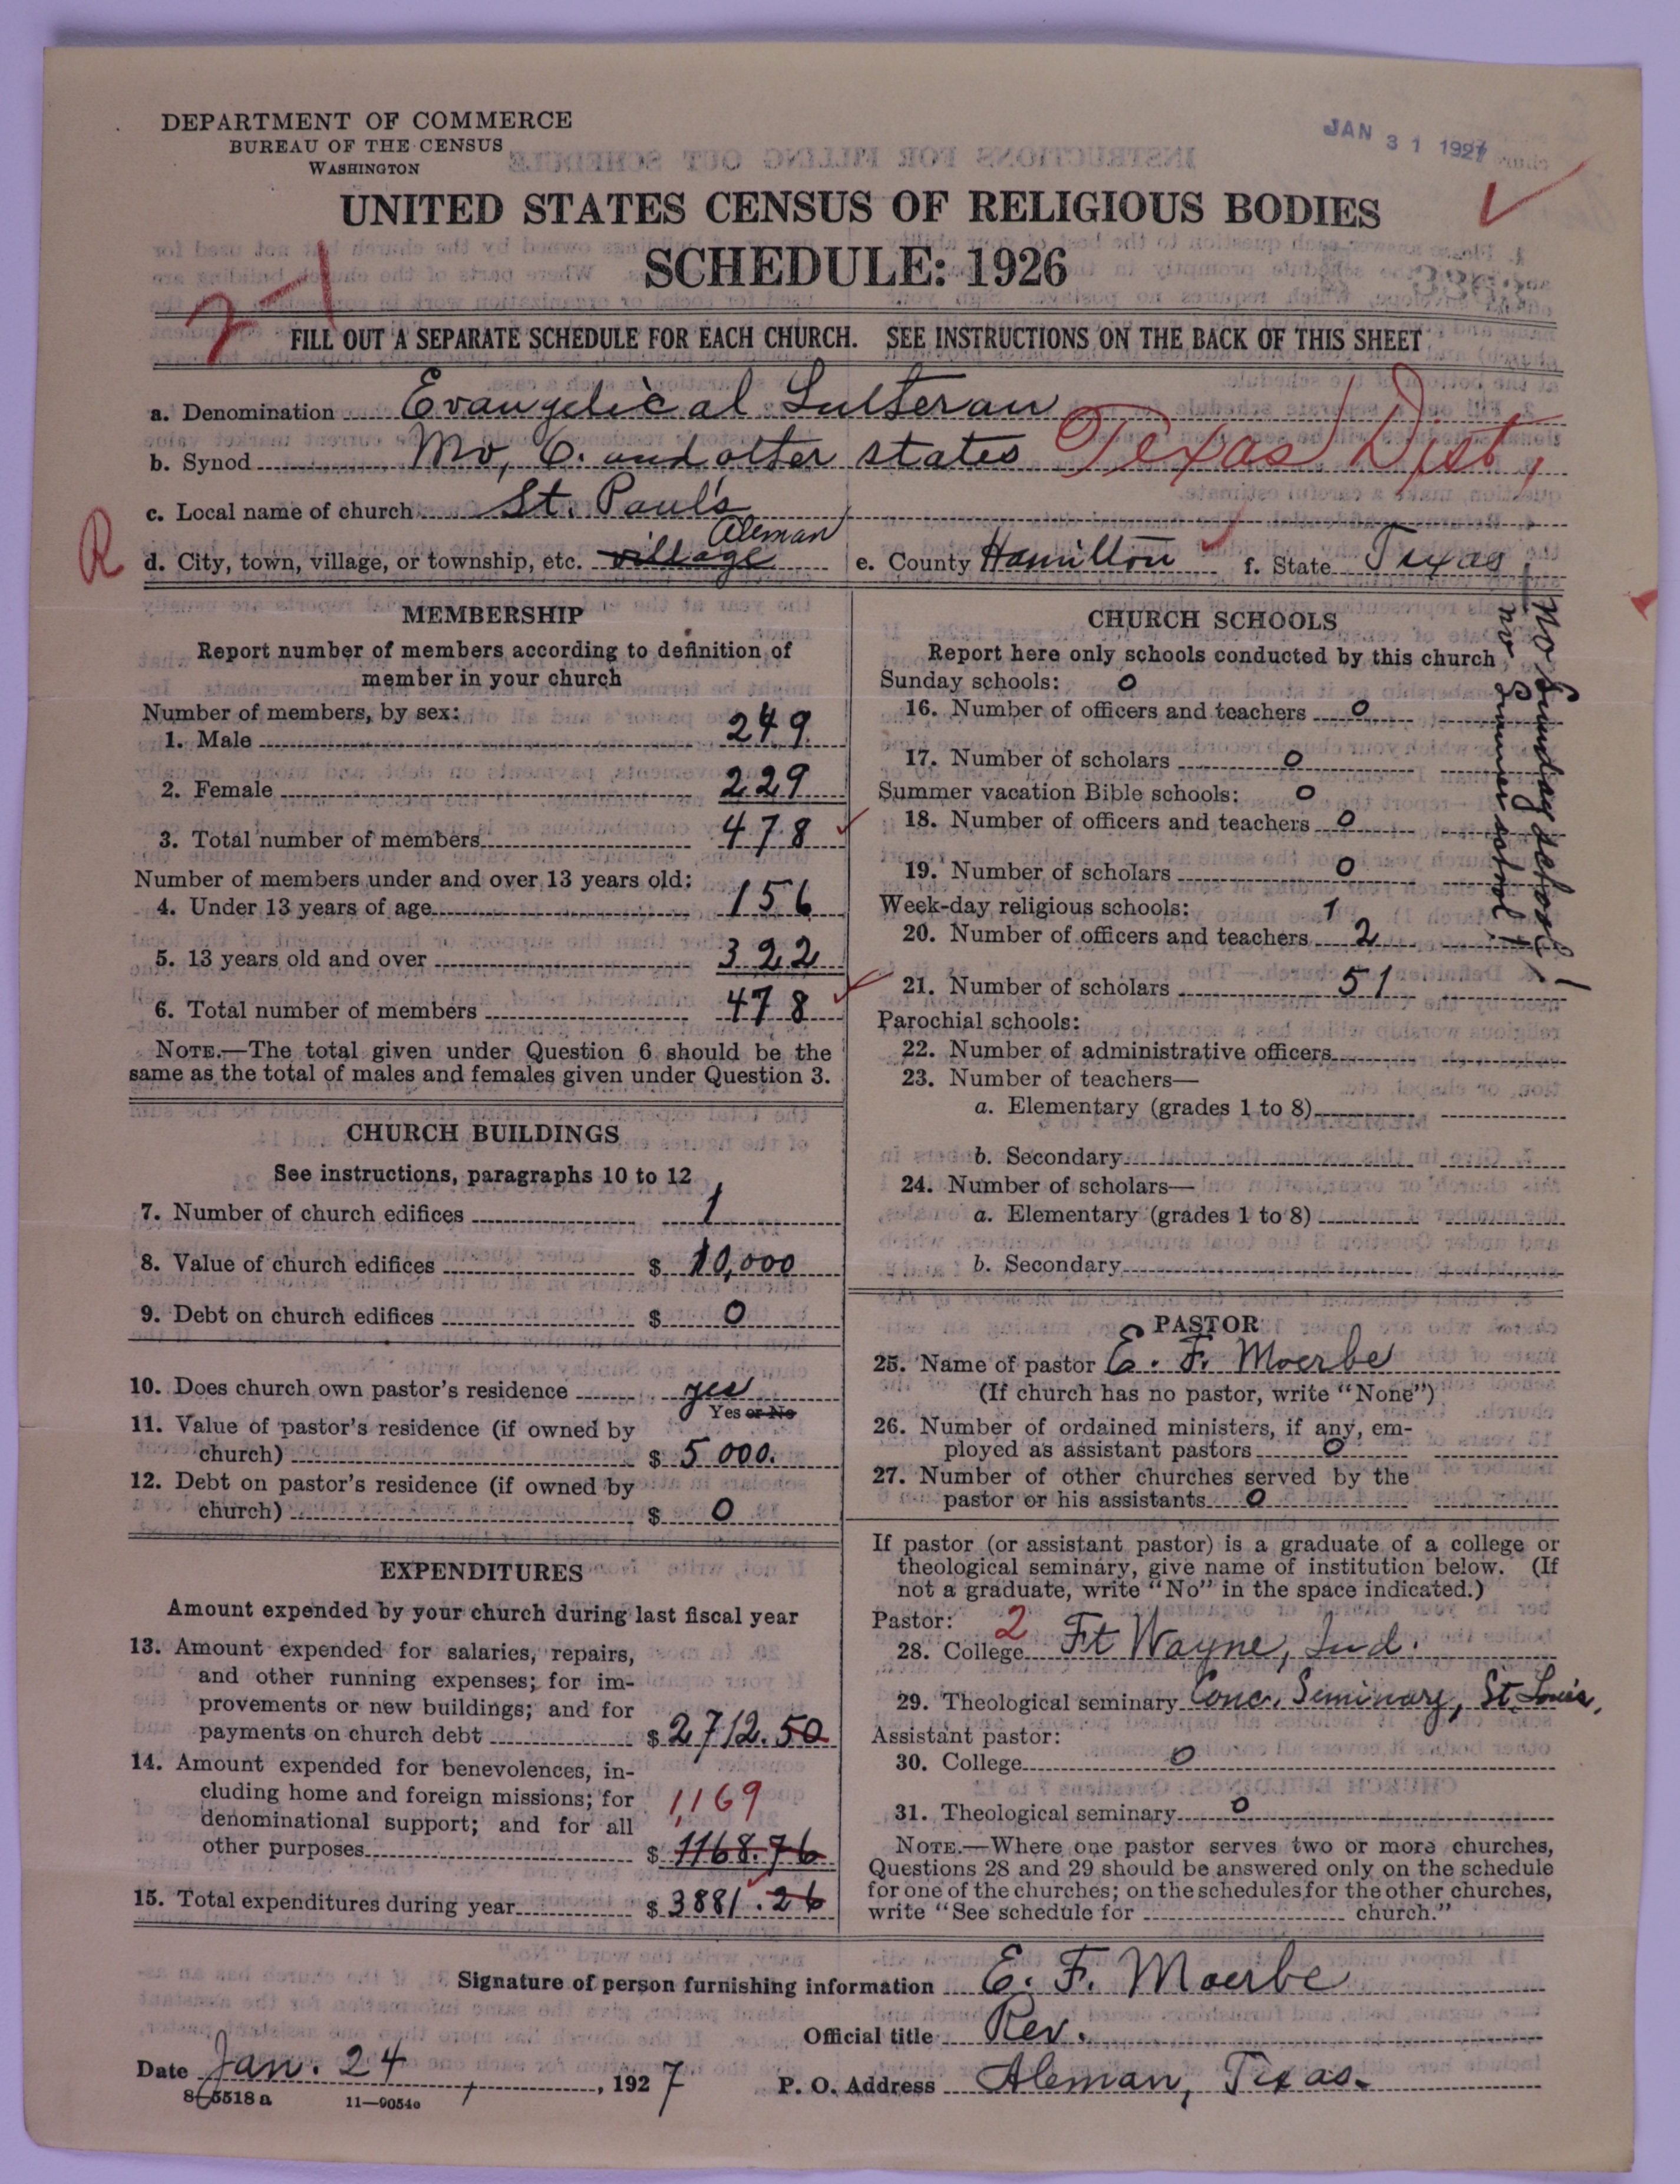 DEPARTMENT OF COMMERCE
BUREAU OF THE CENSUS
WASHINGTON
JAN 31 1927
UNITED STATES CENSUS OF RELIGIOUS BODIES
SCHEDULE: 1926
FILL OUT A SEPARATE SCHEDULE FOR EACH CHURCH. SEE INSTRUCTIONS ON THE BACK OF THIS SHEET
a. Denomination Evangelical Lutheran
b. Synod Mo, O. and other states Texas Dist,
c. Local name of church St. Paul's
R
d. City, town, village, or township, etc. village Aleman
e. County Hamilton
f. State Texas
MEMBERSHIP
Report number of members according to definition of
member in your church
Number of members, by sex:
1. Male 249
2. Female 229
3. Total number of members 478
Number of members under and over 13 years old:
4. Under 13 years of age 156
5. 13 years old and over 322
6. Total number of members 478
NOTE.—The total given under Question 6 should be the
same as the total of males and females given under Question 3.
CHURCH BUILDINGS
See instructions, paragraphs 10 to 12
7. Number of church edifices 1
8. Value of church edifices $ 10,000
9. Debt on church edifices $ 0
10. Does church own pastor's residence yes
Yes or No
11. Value of pastor's residence (if owned by
church) $ 5 000.
12. Debt on pastor's residence (if owned by
church) $ 0
EXPENDITURES
Amount expended by your church during last fiscal year
13. Amount expended for salaries, repairs,
and other running expenses; for im-
provements or new buildings; and for
payments on church debt $ 2712.50
14. Amount expended for benevolences, in-
cluding home and foreign missions; for
denominational support; and for all
1,169
other purposes $ 1168.76
15. Total expenditures during year $ 3881.26
CHURCH SCHOOLS
Report here only schools conducted by this church
Sunday schools: 0
16. Number of officers and teachers 0
17. Number of scholars 0
Summer vacation Bible schools: 0
18. Number of officers and teachers 0
19. Number of scholars 0
Week-day religious schools: 1
20. Number of officers and teachers 2
21. Number of scholars 51
No Sunday school!
no Summer school!
Parochial schools:
22. Number of administrative officers
23. Number of teachers—
a. Elementary (grades 1 to 8)
b. Secondary
24. Number of scholars—
a. Elementary (grades 1 to 8)
b. Secondary
PASTOR
25. Name of pastor E. F. Moerbe
(If church has no pastor, write "None")
26. Number of ordained ministers, if any, em-
ployed as assistant pastors 0
27. Number of other churches served by the
pastor or his assistants 0
If pastor (or assistant pastor) is a graduate of a college or
theological seminary, give name of institution below. (If
not a graduate, write "No" in the space indicated.)
Pastor: 2
28. College Ft Wayne, Ind.
29. Theological seminary Conc. Seminary, St. Louis,
Assistant pastor:
30. College 0
31. Theological seminary 0
NOTE.—Where one pastor serves two or more churches,
Questions 28 and 29 should be answered only on the schedule
for one of the churches; on the schedules for the other churches,
write "See schedule for church."
Signature of person furnishing information E. F. Moerbe
Official title Rev.
Date Jan. 24, 1927
P. O. Address Aleman, Texas.
8-5518 a
11—9054a